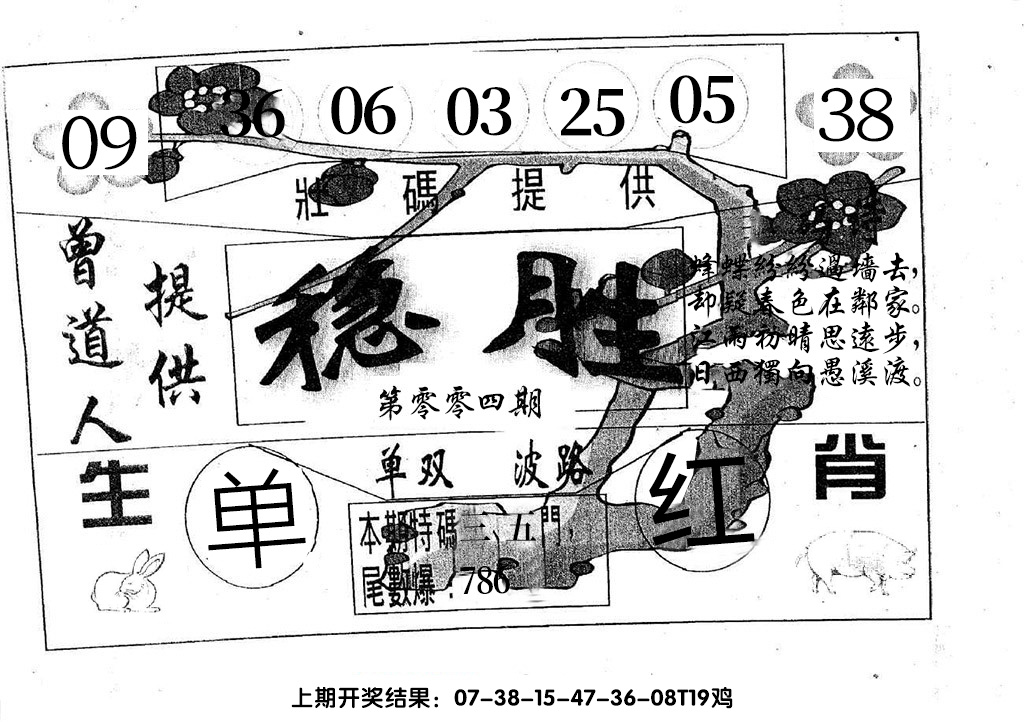 09 36 06 03 25 05 38
壯碼提供
曾道人
提供
特
稳胜
第零零四期
蜂蝶紛紛過墻去，
却疑春色在鄰家。
江雨初晴思遠步，
日西獨向愚溪渡。
单双 波路
生肖
单
红
本期特碼三、五門，
尾數爆：786
上期开奖结果：07-38-15-47-36-08T19鸡